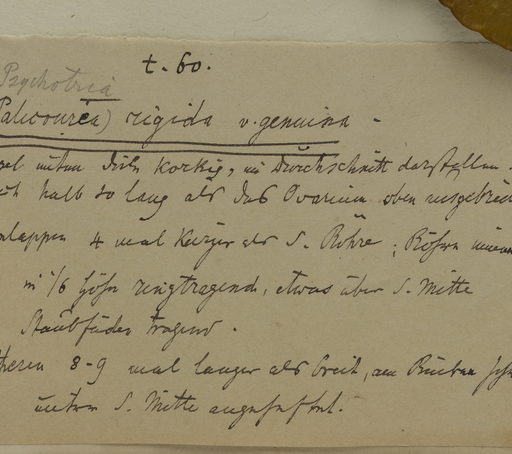 t. 60.
Psychotria
Palicourea) rigida v. genuina -
unten dick korkig, im Durchschnitt darstellen.
halb so lang als das Ovarium oben ausgebreitet
lappen 4 mal kürzer als d. Röhre; Röhre innen
in 1/6 Höhe ringtragend, etwas über d. Mitte
Staubfäden tragend.
theren 8-9 mal länger als breit, am Rücken
unter d. Mitte angeheftet.